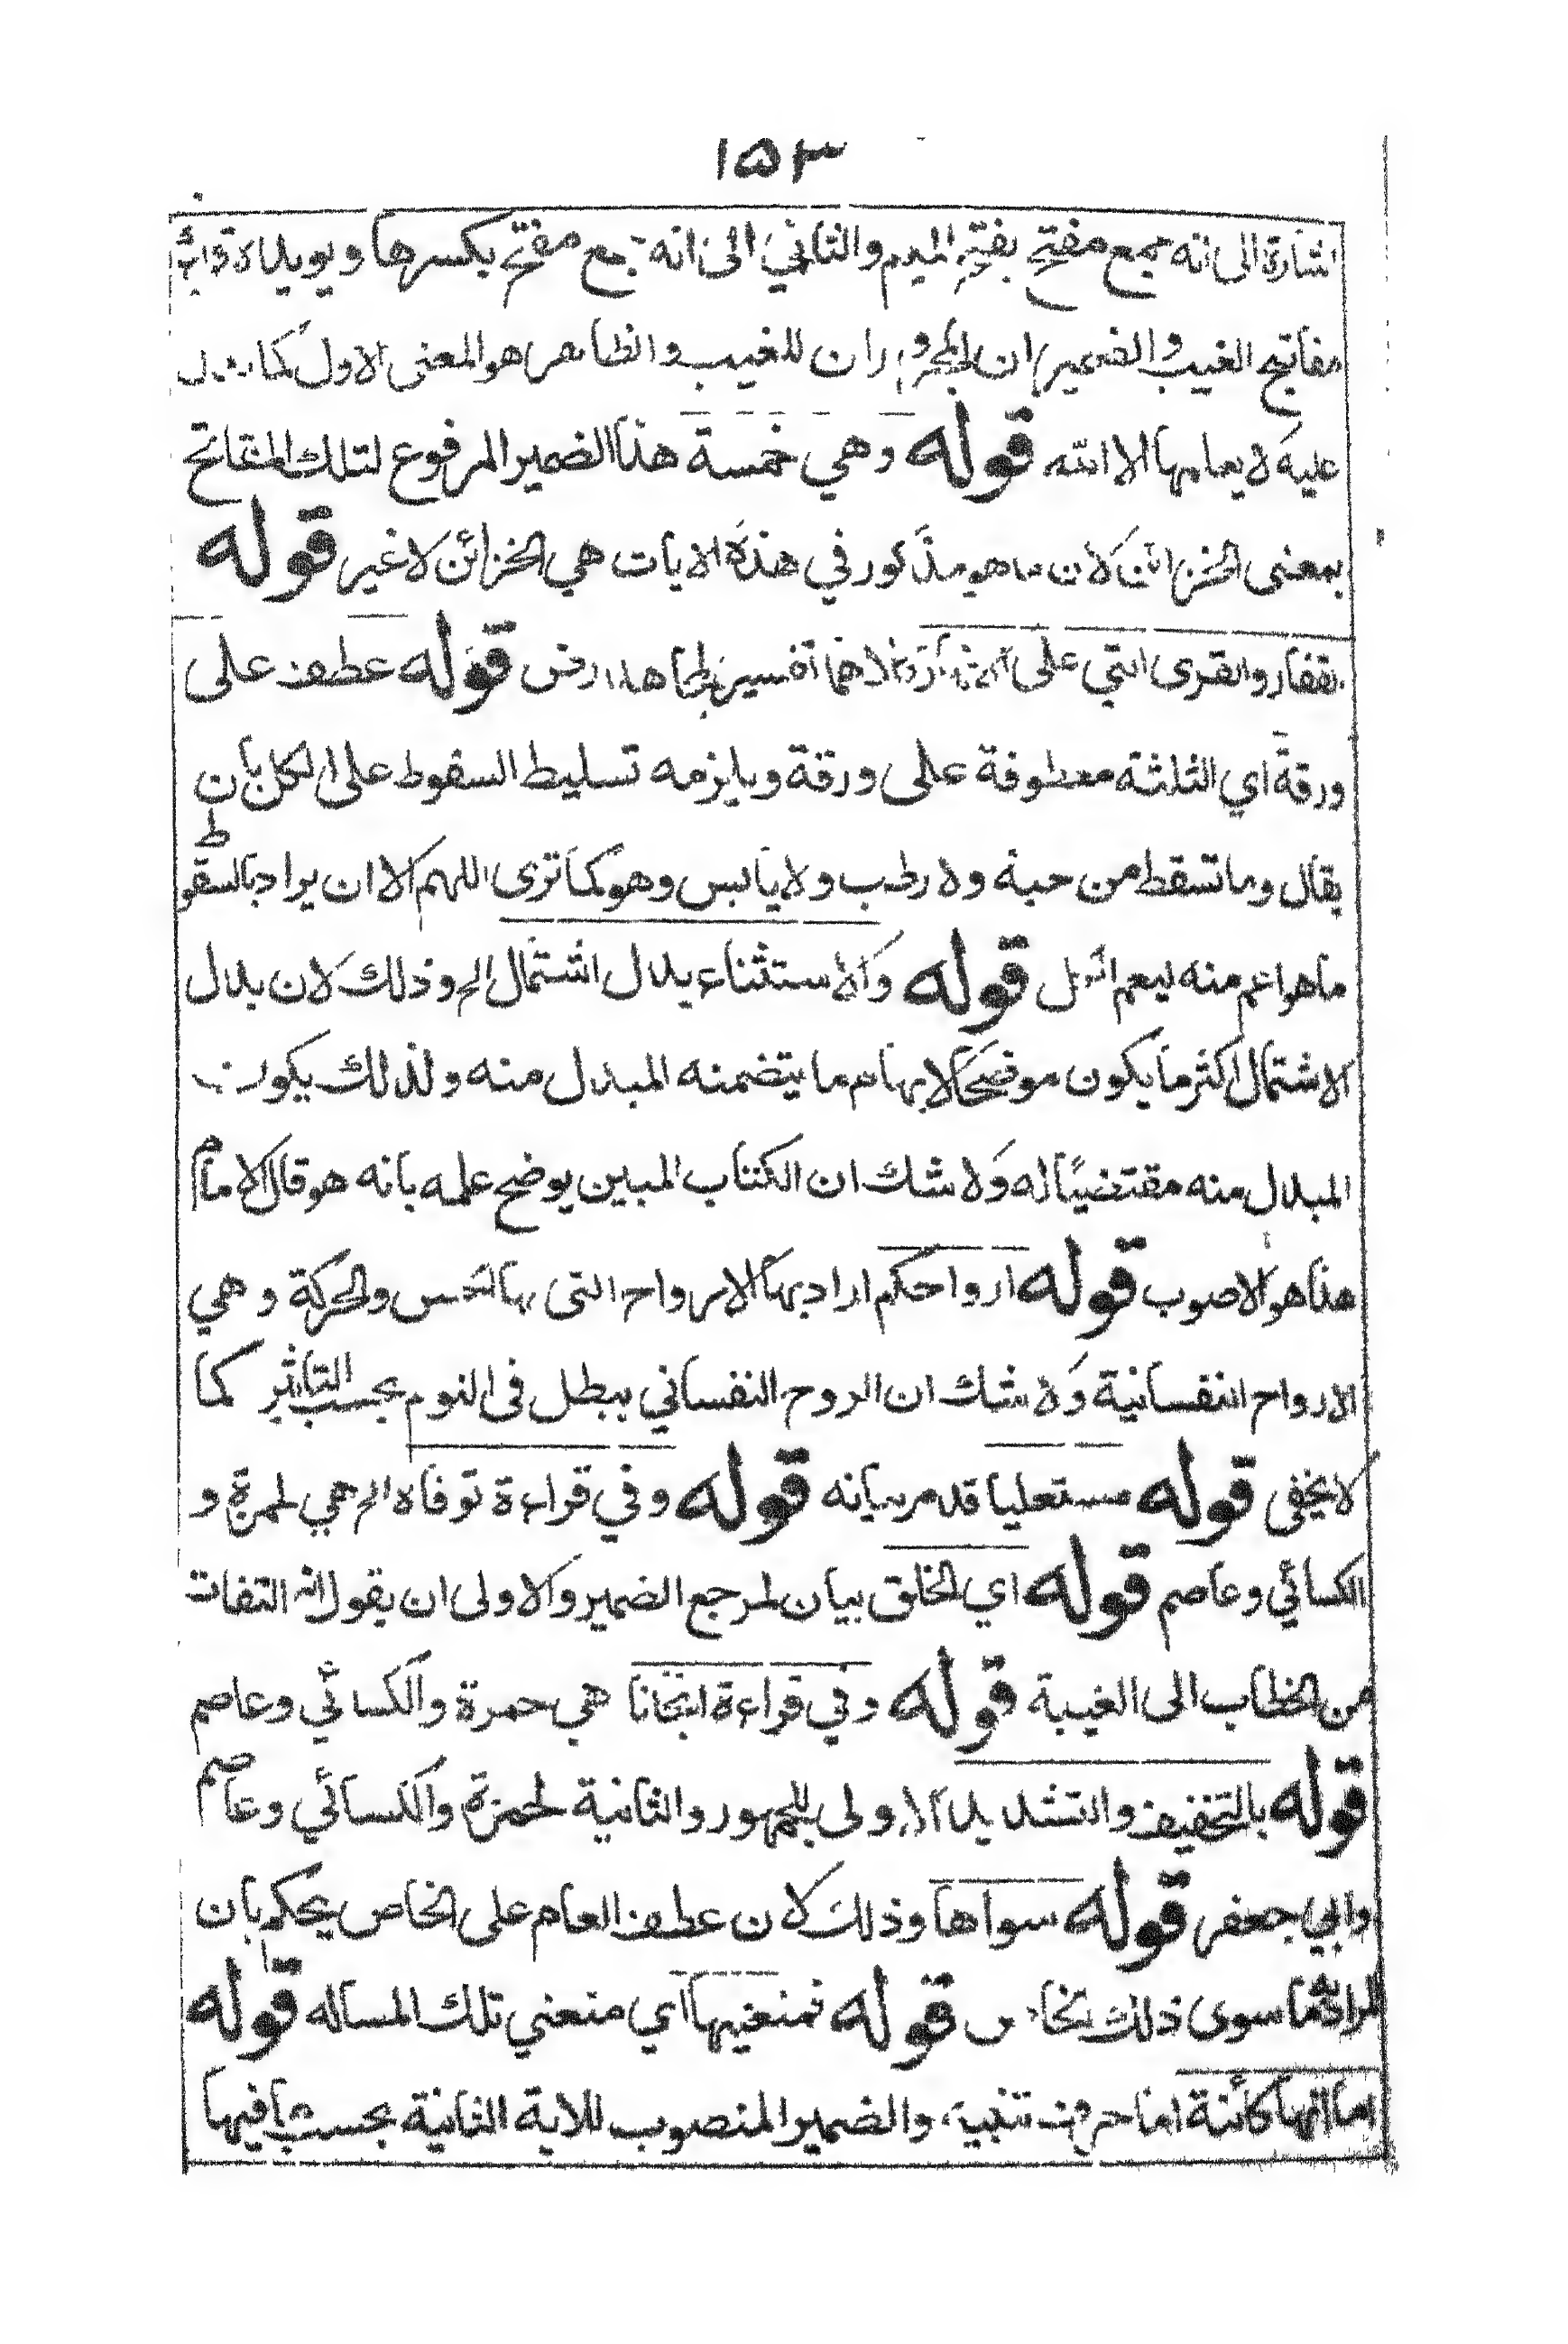 ١٥٣
اشارة الى انه جمع مفتح بفتح الميم والثاني الى انه جمع مفتح بكسرها ويويده قراءة
مفاتيح الغيب والضمير ان المجروران للغيب والظاهر هو المعنى الاول كما يدل
عليه لا يعلمها الا الله قوله وهي خمسة هذا الضمير المرفوع لتلك المفاتح
بمعنى الخزائن لان ما هو مذكور في هذه الايات هي الخزائن لا غير قوله
القفار والقرى التي على لانهما تفسير لمجاهد رض قوله عطف على
ورقة اي الثلثة معطوفة على ورقة ويلزمه تسليط السقوط على الكل بان
يقال وما تسقط من حبة ولا رطب ولا يابس وهو كما ترى اللهم الا ان يراد بالسقوط
ما هو اعم منه ليعم الكل قوله والاستثناء بدل اشتمال الخ وذلك لان بدل
الاشتمال اكثر ما يكون موضحا لابهام ما يتضمنه المبدل منه ولذلك يكون
المبدل منه مقتضيا له ولا شك ان الكتاب المبين يوضح علمه بانه هو قال الامام
هذا هو الاصوب قوله ارواحكم اراد بها الارواح التى بها الحس والحركة وهي
الارواح النفسانية ولا شك ان الروح النفساني يبطل فى النوم بحسب التاثير كما
لا يخفى قوله مستعليا قد مر بيانه قوله وفي قراءة توفاه الخ هي لحمزة و
الكسائي وعاصم قوله اي الخلق بيان لمرجع الضمير والاولى ان يقول انه التفات
من الخطاب الى الغيبة قوله وفي قراءة انجانا هي حمزة والكسائي وعاصم
قوله بالتخفيف والتشديد الاولى للجمهور والثانية لحمزة والكسائي وعاصم
وابي جعفر قوله سواها وذلك لان عطف العام على الخاص يحكم بان
المراد ما سوى ذلك الخاص قوله فمنعنيها اي منعني تلك المساله قوله
اما انها كائنة اما حرف تنبيه والضمير المنصوب للاية الثانية بحسب ما فيها